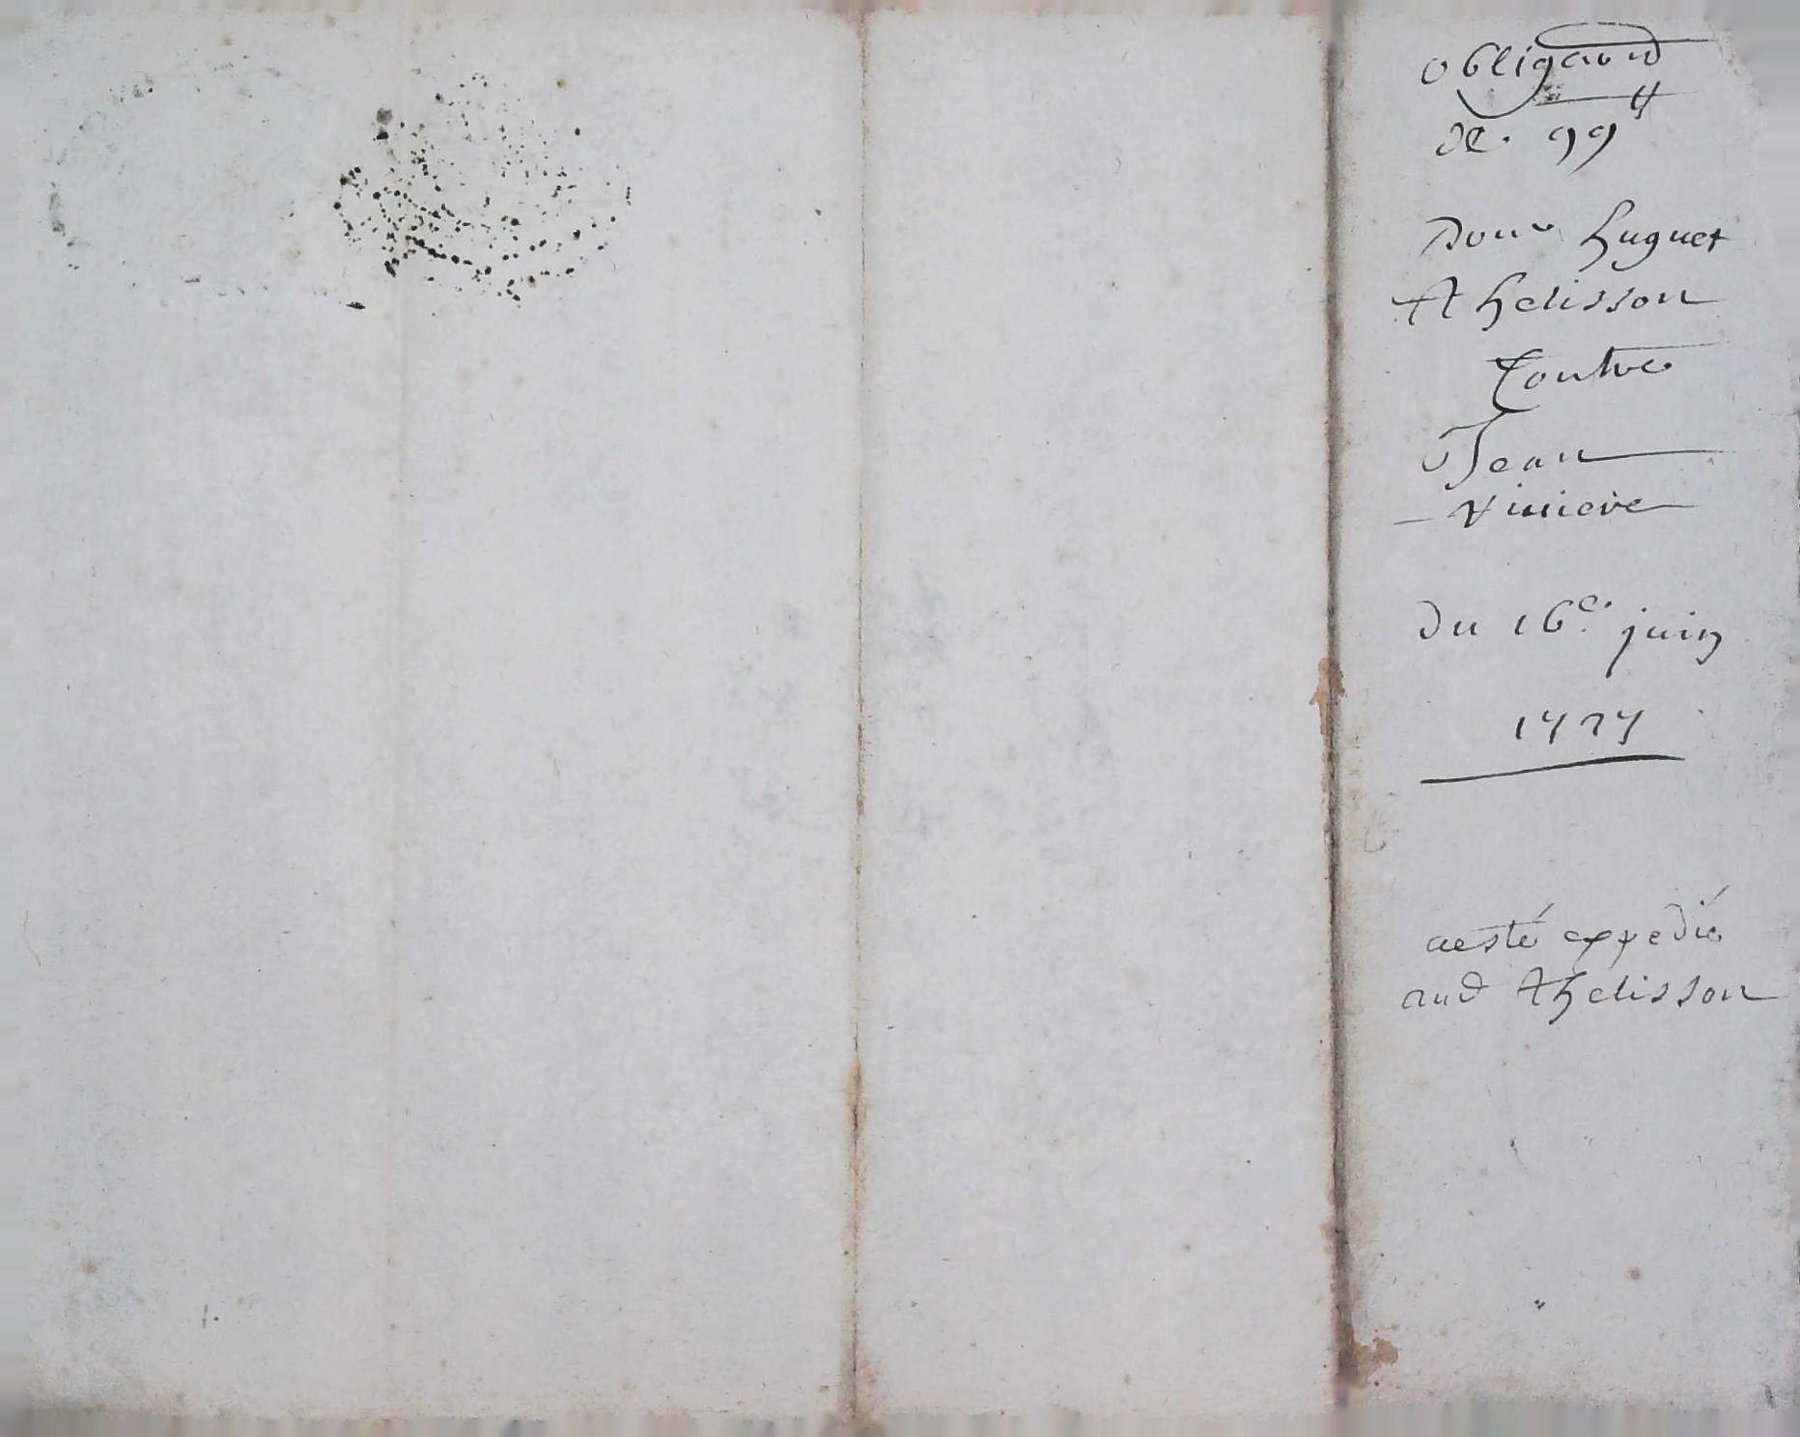 obligaon
de 99 ₶
Pour huguet
Athelisson
Contre
Jean
viniere
du 16e juin
1727
aesté expedié
aud Athelisson